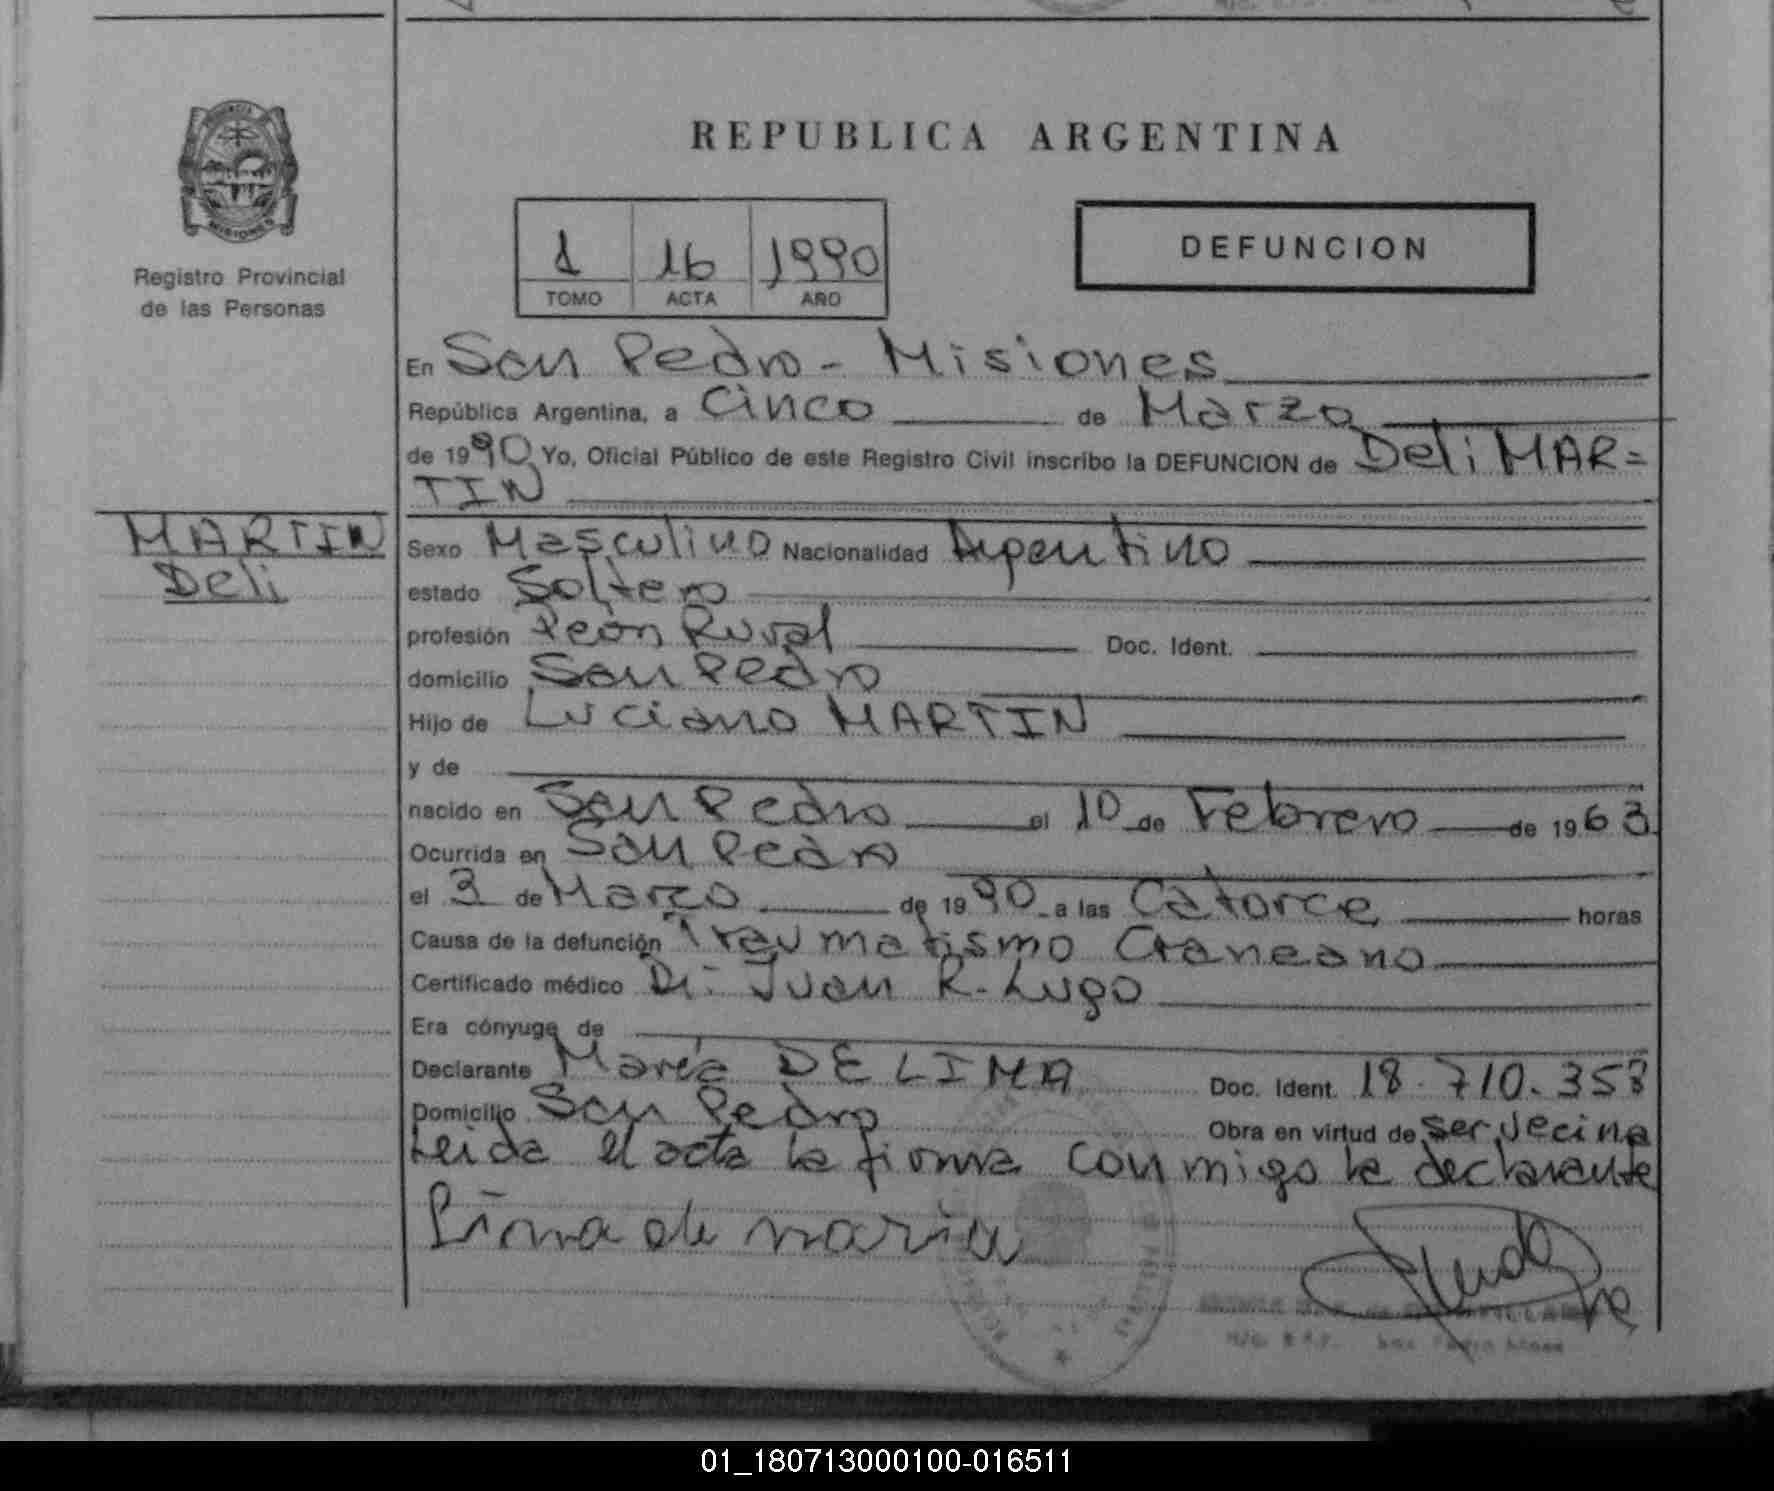 REPUBLICA ARGENTINA
Registro Provincial
de las Personas
1 16 1990
TOMO ACTA AÑO
DEFUNCION
En San Pedro - Misiones
República Argentina, a Cinco de Marzo
de 1990 Yo, Oficial Público de este Registro Civil inscribo la DEFUNCION de Deli MAR=
TIN
MARTIN
Deli
Sexo Masculino Nacionalidad Argentino
estado Soltero
profesión Peón Rural Doc. Ident.
domicilio San Pedro
Hijo de Luciano MARTIN
y de
nacido en San Pedro el 10 de Febrero de 1963
Ocurrida en San Pedro
el 3 de Marzo de 1990 a las Catorce horas
Causa de la defunción Traumatismo Craneano
Certificado médico Dr. Juan R. Lugo
Era cónyuge de
Declarante María DE LIMA Doc. Ident. 18.710.353
Domicilio San Pedro Obra en virtud de ser vecina
Leida el acta la firma conmigo la declarante
Lima de maria
01_180713000100-016511